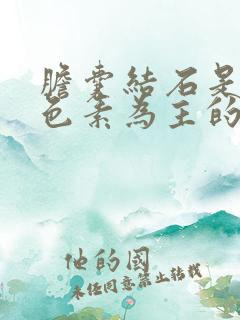 膽囊結石是
色素為主的
他的國
未经同意禁止转载